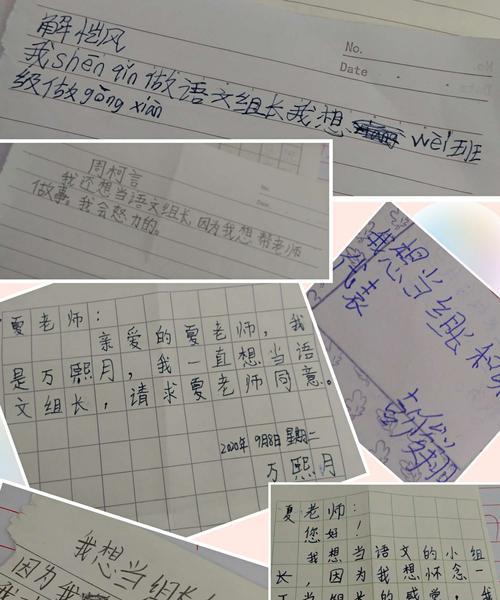 No.
Date
解恺风
我shēn qǐn做语文组长我想 wèi班
级做gòng xiàn
周柯言
我还想当语文组长,因为我想帮老师
做事,我会努力的。
我想当组长和
代表
夏老师:
亲爱的夏老师,我
是万熙月,我一直想当语
文组长,请求夏老师同意。
2020年9月8日星期二
万熙月
我想当组长
因为我
夏老师:
您好!
我想当语文的小组
长,因为我想怀念一
当组长的感觉,我